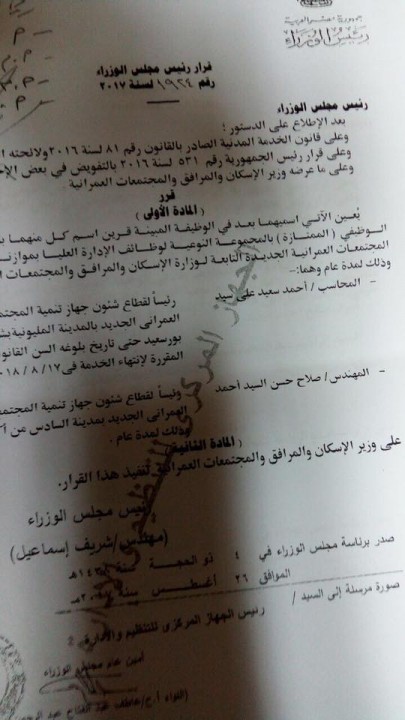 جمهورية مصر العربية
رئيس الوزراء
قرار رئيس مجلس الوزراء
رقم ١٩٢٤ لسنة ٢٠١٧
رئيس مجلس الوزراء
بعد الإطلاع على الدستور ؛
وعلى قانون الخدمة المدنية الصادر بالقانون رقم ٨١ لسنة ٢٠١٦ ولائحته
وعلى قرار رئيس الجمهورية رقم ٥٣١ لسنة ٢٠١٦ بالتفويض في بعض
وعلى ما عرضه وزير الإسكان والمرافق والمجتمعات العمرانية
قرر
( المادة الأولى )
يُعين الآتي اسميهما بعد في الوظيفة المبينة قرين اسم كل منهما
الوظيفي ( الممتازة ) بالمجموعة النوعية لوظائف الإدارة العليا
المجتمعات العمرانية الجديدة التابعة لوزارة الإسكان والمرافق والمجتمعات
وذلك لمدة عام وهما:-
– المحاسب / أحمد سعيد على سيد
رئيساً لقطاع شئون جهاز تنمية
العمراني الجديد بالمدينة المليونية
بورسعيد حتى تاريخ بلوغه السن
المقررة لإنتهاء الخدمة في
– المهندس/ صلاح حسن السيد أحمد
رئيساً لقطاع شئون جهاز تنمية
العمراني الجديد بمدينة السادس من
وذلك لمدة عام .
( المادة الثانية )
على وزير الإسكان والمرافق والمجتمعات العمرانية تنفيذ هذا القرار.
رئيس مجلس الوزراء
(مهندس/شريف إسماعيل)
صدر برئاسة مجلس الوزراء في ٤ ذو الحجة سنة ١٤٣٨هـ
الموافق ٢٦ أغسطس سنة
صورة مرسلة إلى السيد /
رئيس الجهاز المركزي للتنظيم والإدارة
أمين عام مجلس الوزراء